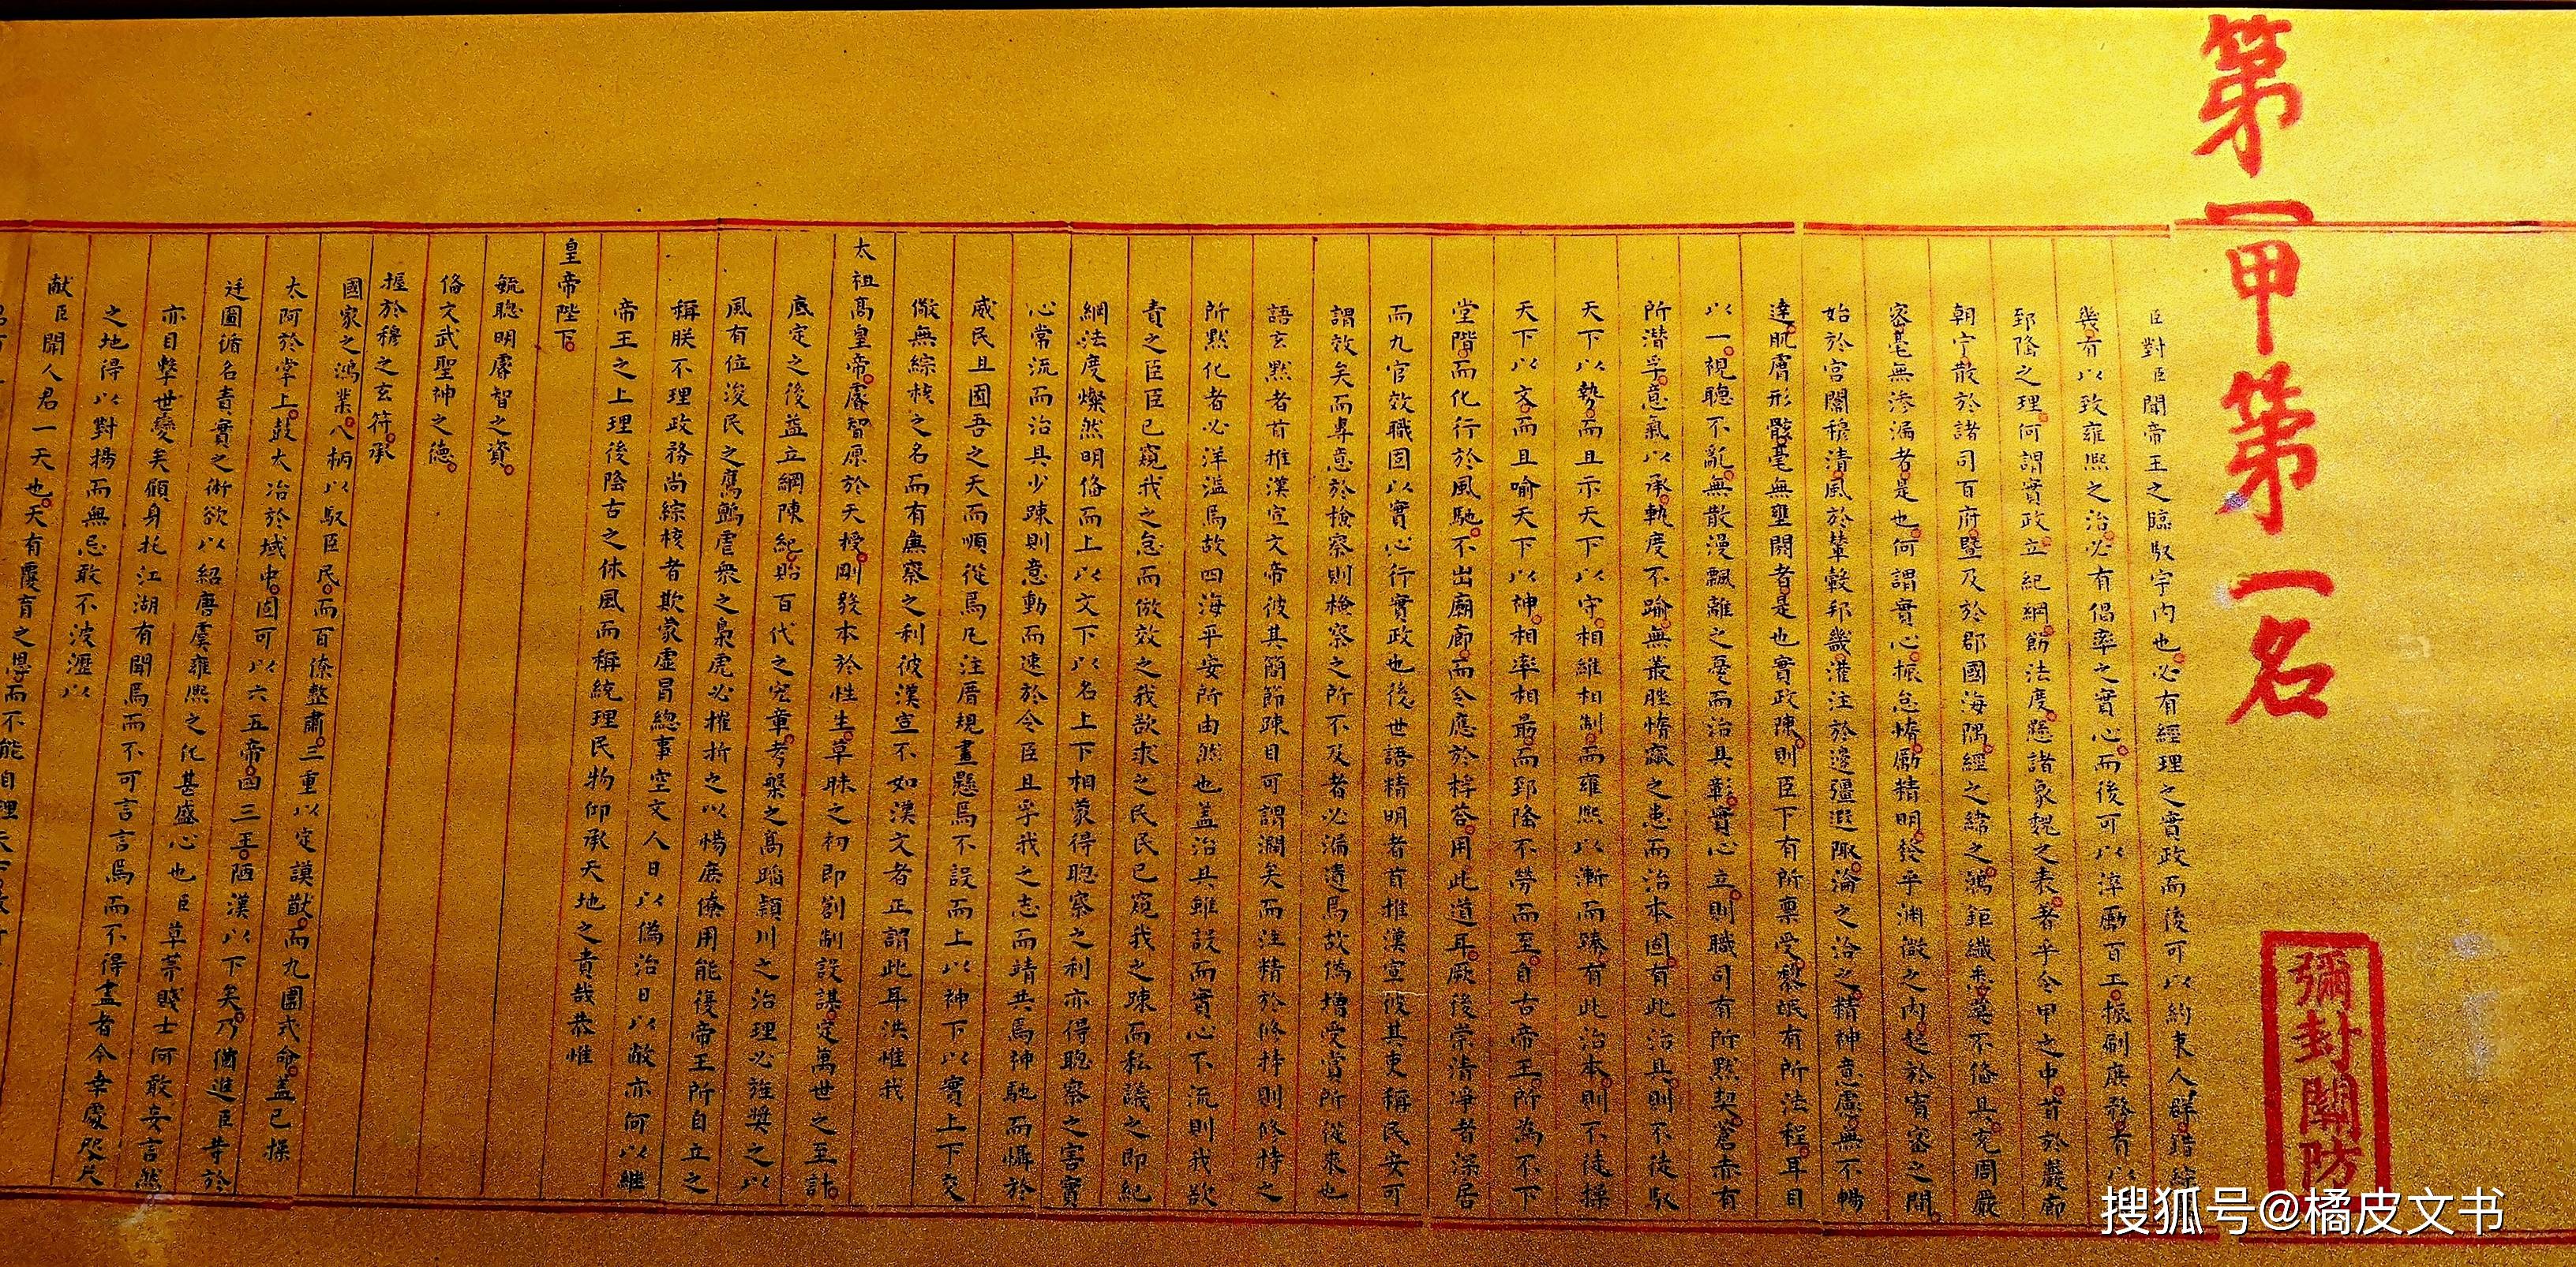 第一甲第一名
彌封關防
臣對臣聞帝王之臨馭宇內也必有經理之實政而後可以約束人群錯綜
幾有以致雍熙之治必有倡率之實心而後可以淬勵百工振刷庶務有以
郅隆之理何謂實政立紀綱飭法度懸諸象魏之表著乎令甲之中首於巖廊
朝宁散於諸司百府暨及於郡國海隅經之緯之鴻鉅纖悉莫不備具充周嚴
密毫無滲漏者是也何謂實心振怠惰勵精明發乎淵微之內起於宥密之間
始於宮闈穆清風於輦轂邦畿灌注於邊疆遐陬淪之洽之精神意慮無不暢
達肌膚形骸毫無壅閼者是也實政陳則臣下有所稟受黎氓有所法程耳目
以一視聽不亂無散漫飄離之憂而治具彰實心立則職司有所默契蒼赤有
所潛孚意氣以承軌度不踰無叢脞惰窳之患而治本固有此治具則不徒馭
天下以勢而且示天下以守相維相制而雍熙以漸而臻有此治本則不徒操
天下以文而且喻天下以神相率相最而郅隆不勞而至自古帝王所為不下
堂階而化行於風馳不出廟廊而令應於桴答用此道耳厥後崇清凈者深居
而九官效職固以實心行實政也後世語精明者首推漢宣彼其吏稱民安可
謂效矣而專意於檢察則檢察之所不及者必漏遺焉故偽增受賞所從來也
語玄默者首推漢宣文帝彼其簡節疎目可謂濶矣而注精於修持則修持之
所默化者必洋溢焉故四海平安所由然也蓋治具雖設而實心不流則我欲
責之臣臣已窺我之怠而倣效之我欲求之民民已窺我之疎而私議之即紀
綱法度燦然明備而上以文下以名上下相蒙得聰察之利亦得聰察之害實
心常流而治具少疎則意動而速於令臣且孚我之志而靖共焉神馳而懾於
威民且囿吾之天而順從焉凡注厝規畫懸焉不設而上以神下以實上下交
儆無綜核之名而有廉察之利彼漢宣不如漢文者正謂此耳洪惟我
太祖高皇帝睿智原於天授剛毅本於性生草昧之初即創制設謀定萬世之至計
底定之後益立綱陳紀貽百代之宏章考槃之高蹈潁川之治理必旌獎之以
風有位浚民之鷹鸇虐衆之梟虎必摧折之以惕庶僚用能復帝王所自立之
稱朕不理政務尚綜核者欺蒙虛冒總事空文人日以偽治日以敝亦何以繼
帝王之上理後隆古之休風而稱統理民物仰承天地之責哉恭惟
皇帝陛下
毓聰明睿智之資
備文武聖神之德
握於穆之玄符承
國家之鴻業八柄以馭臣民而百僚整肅三重以定謨猷而九圍式命蓋已操
太阿於掌上鼓太冶於域中固可以六五帝四三王陋漢以下矣乃猶進臣等於
廷圖循名責實之術欲以紹唐虞雍熙之化甚盛心也臣草茅賤士何敢妄言然
亦目擊世變矣顧身托江湖有聞焉而不可言言焉而不得盡者今幸處咫尺
之地得以對揚而無忌敢不披瀝以
献臣聞人君一天也天有覆育之恩而不能自理天下故